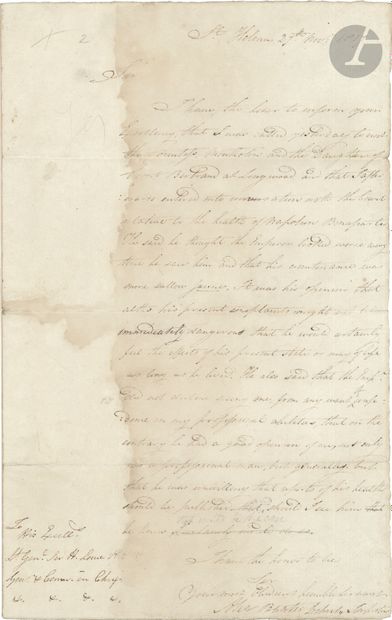 2
St. Helena 29th Nov.
Sir
I have the honor to inform your
Excellency, that I was called yesterday to visit
the Countess Montholon and the Daughter of
Count Bertrand at Longwood and that I
entered into conversation with the Count
relative to the health of Napoleon Bonaparte
He said he thought the Emperor looked worse
he saw him and that his countenance was
more sallow It was his opinion that
altho his present complaints might not be
immediately dangerous that he would certainly
feel the effects of his present state or way of life
as long as he lived. He also said that the
did not decline seeing me from any want of confi-
dence in my professional abilities, that on the
contrary he had a good opinion of me, not only
as a professional man, but generally, but
that he was unwilling that of his health
should be published that, should I see him
he
I have the honor to be
Sir
Your most obedient humble servant
Alex Baxter
To
His Excell.
Lt Genl. Sir H. Lowe
Govr. & Comr. in Chief
&. &. &.